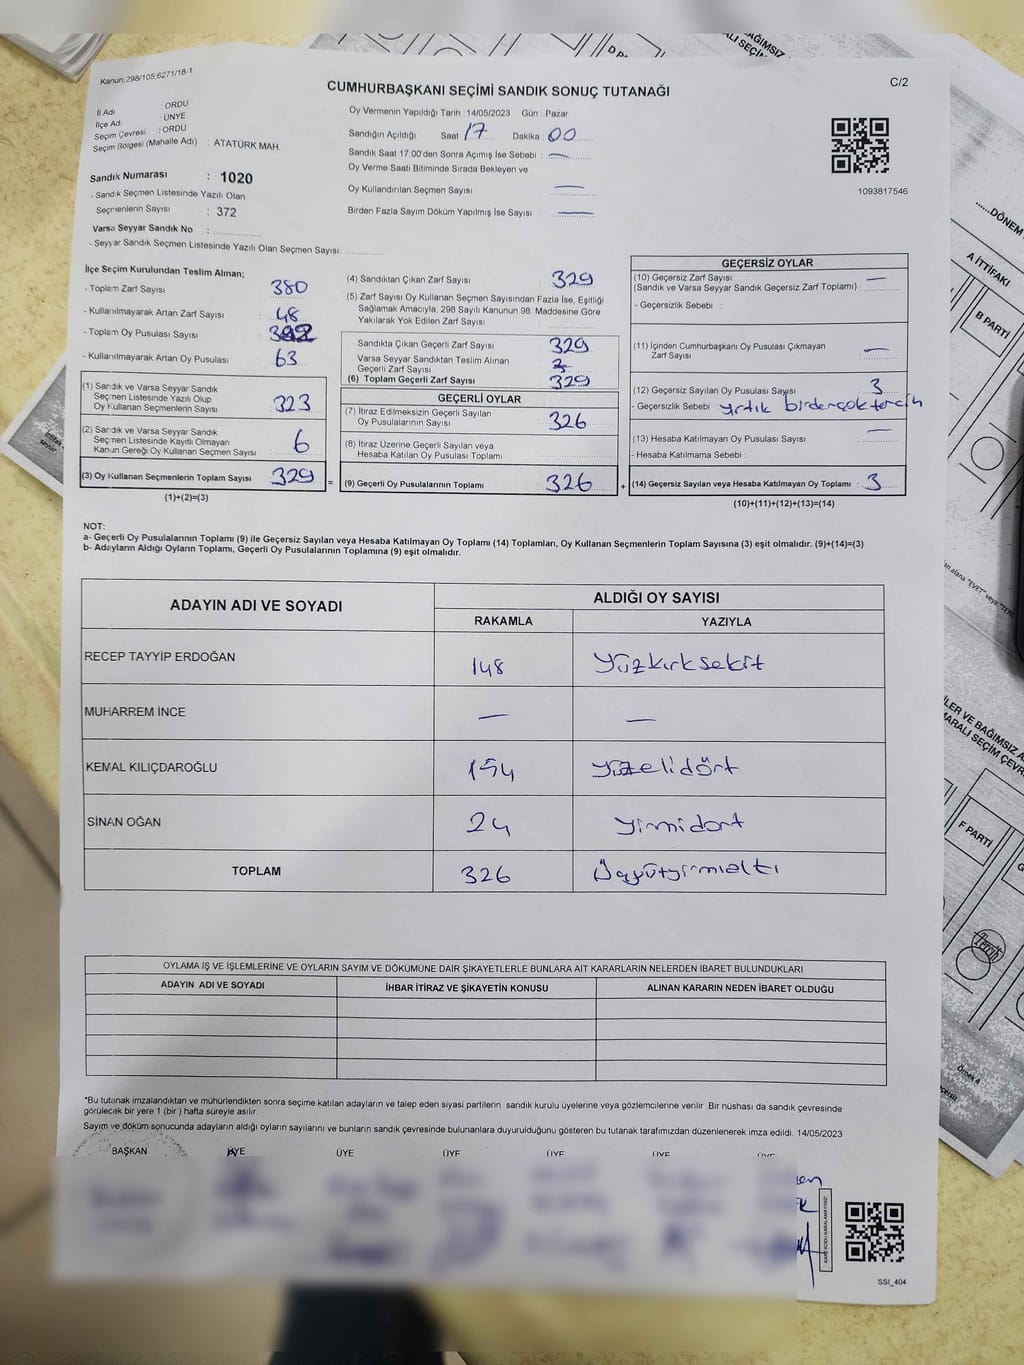 Kanun:298/105,6271/18-1
C/2
CUMHURBAŞKANI SEÇİMİ SANDIK SONUÇ TUTANAĞI
İl Adı : ORDU
İlçe Adı : ÜNYE
Seçim Çevresi : ORDU
Seçim Bölgesi (Mahalle Adı) : ATATÜRK MAH.
Sandık Numarası : 1020
- Sandık Seçmen Listesinde Yazılı Olan
Seçmenlerin Sayısı : 372
Varsa Seyyar Sandık No :
- Seyyar Sandık Seçmen Listesinde Yazılı Olan Seçmen Sayısı:
Oy Vermenin Yapıldığı Tarih : 14/05/2023 Gün : Pazar
Sandığın Açıldığı Saat 17 Dakika : 00
Sandık Saat 17:00'den Sonra Açımış İse Sebebi : —
Oy Verme Saati Bitiminde Sırada Bekleyen ve
Oy Kullandırılan Seçmen Sayısı : —
Birden Fazla Sayım Döküm Yapılmış İse Sayısı : —
1093817546
İlçe Seçim Kurulundan Teslim Alınan;
- Toplam Zarf Sayısı : 380
- Kullanılmayarak Artan Zarf Sayısı : 48
- Toplam Oy Pusulası Sayısı :
- Kullanılmayarak Artan Oy Pusulası : 63
(1) Sandık ve Varsa Seyyar Sandık
Seçmen Listesinde Yazılı Olup
Oy Kullanan Seçmenlerin Sayısı : 323
(2) Sandık ve Varsa Seyyar Sandık
Seçmen Listesinde Kayıtlı Olmayan
Kanun Gereği Oy Kullanan Seçmen Sayısı : 6
(3) Oy Kullanan Seçmenlerin Toplam Sayısı : 329
(1)+(2)=(3)
=
(4) Sandıktan Çıkan Zarf Sayısı : 329
(5) Zarf Sayısı Oy Kullanan Seçmen Sayısından Fazla İse, Eşitliği
Sağlamak Amacıyla; 298 Sayılı Kanunun 98. Maddesine Göre
Yakılarak Yok Edilen Zarf Sayısı :
Sandıkta Çıkan Geçerli Zarf Sayısı : 329
Varsa Seyyar Sandıktan Teslim Alınan
Geçerli Zarf Sayısı :
(6) Toplam Geçerli Zarf Sayısı : 329
GEÇERLİ OYLAR
(7) İtiraz Edilmeksizin Geçerli Sayılan
Oy Pusulalarının Sayısı : 326
(8) İtiraz Üzerine Geçerli Sayılan veya
Hesaba Katılan Oy Pusulası Toplamı :
(9) Geçerli Oy Pusulalarının Toplamı : 326
+
GEÇERSİZ OYLAR
(10) Geçersiz Zarf Sayısı —
(Sandık ve Varsa Seyyar Sandık Geçersiz Zarf Toplamı) :
- Geçersizlik Sebebi :
(11) İçinden Cumhurbaşkanı Oy Pusulası Çıkmayan
Zarf Sayısı : —
(12) Geçersiz Sayılan Oy Pusulası Sayısı : 3
- Geçersizlik Sebebi : yırtık birdençok tercih
(13) Hesaba Katılmayan Oy Pusulası Sayısı : —
- Hesaba Katılmama Sebebi :
(14) Geçersiz Sayılan veya Hesaba Katılmayan Oy Toplamı : 3
(10)+(11)+(12)+(13)=(14)
NOT:
a- Geçerli Oy Pusulalarının Toplamı (9) ile Geçersiz Sayılan veya Hesaba Katılmayan Oy Toplamı (14) Toplamları, Oy Kullanan Seçmenlerin Toplam Sayısına (3) eşit olmalıdır. (9)+(14)=(3)
b- Adayların Aldığı Oyların Toplamı, Geçerli Oy Pusulalarının Toplamına (9) eşit olmalıdır.
ADAYIN ADI VE SOYADI
ALDIĞI OY SAYISI
RAKAMLA YAZIYLA
RECEP TAYYİP ERDOĞAN 148 Yüzkırksekit
MUHARREM İNCE — —
KEMAL KILIÇDAROĞLU 154 yüzelidört
SİNAN OĞAN 24 yirmidört
TOPLAM 326 Üçyüzyirmialtı
OYLAMA İŞ VE İŞLEMLERİNE VE OYLARIN SAYIM VE DÖKÜMÜNE DAİR ŞİKAYETLERLE BUNLARA AİT KARARLARIN NELERDEN İBARET BULUNDUKLARI
ADAYIN ADI VE SOYADI İHBAR İTİRAZ VE ŞİKAYETİN KONUSU ALINAN KARARIN NEDEN İBARET OLDUĞU
*Bu tutanak imzalandıktan ve mühürlendikten sonra seçime katılan adayların ve talep eden siyasi partilerin sandık kurulu üyelerine veya gözlemcilerine verilir. Bir nüshası da sandık çevresinde
görülecek bir yere 1 (bir ) hafta süreyle asılır.
Sayım ve döküm sonucunda adayların aldığı oyların sayılarını ve bunların sandık çevresinde bulunanlara duyurulduğunu gösteren bu tutanak tarafımızdan düzenlenerek imza edildi. 14/05/2023
BAŞKAN ÜYE ÜYE ÜYE ÜYE ÜYE ÜYE
SSI_404
BAĞIMSIZ
.......DÖNEM
A İTTİFAKI
B PARTİ
F PARTİ
Tercih
Örnek 4